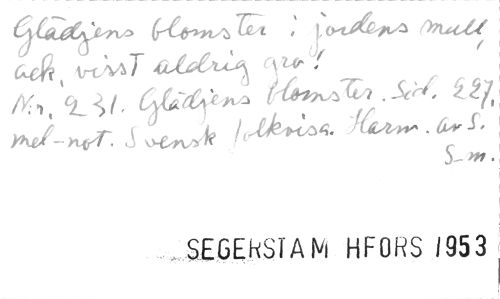 Glädjens blomster i jordens mull,
ack, visst aldrig gro!
N:r. 231. Glädjens blomster. Sid. 227,
mel-not. Svensk folkvisa. Harm. av S.
S-m.
SEGERSTAM HFORS 1953